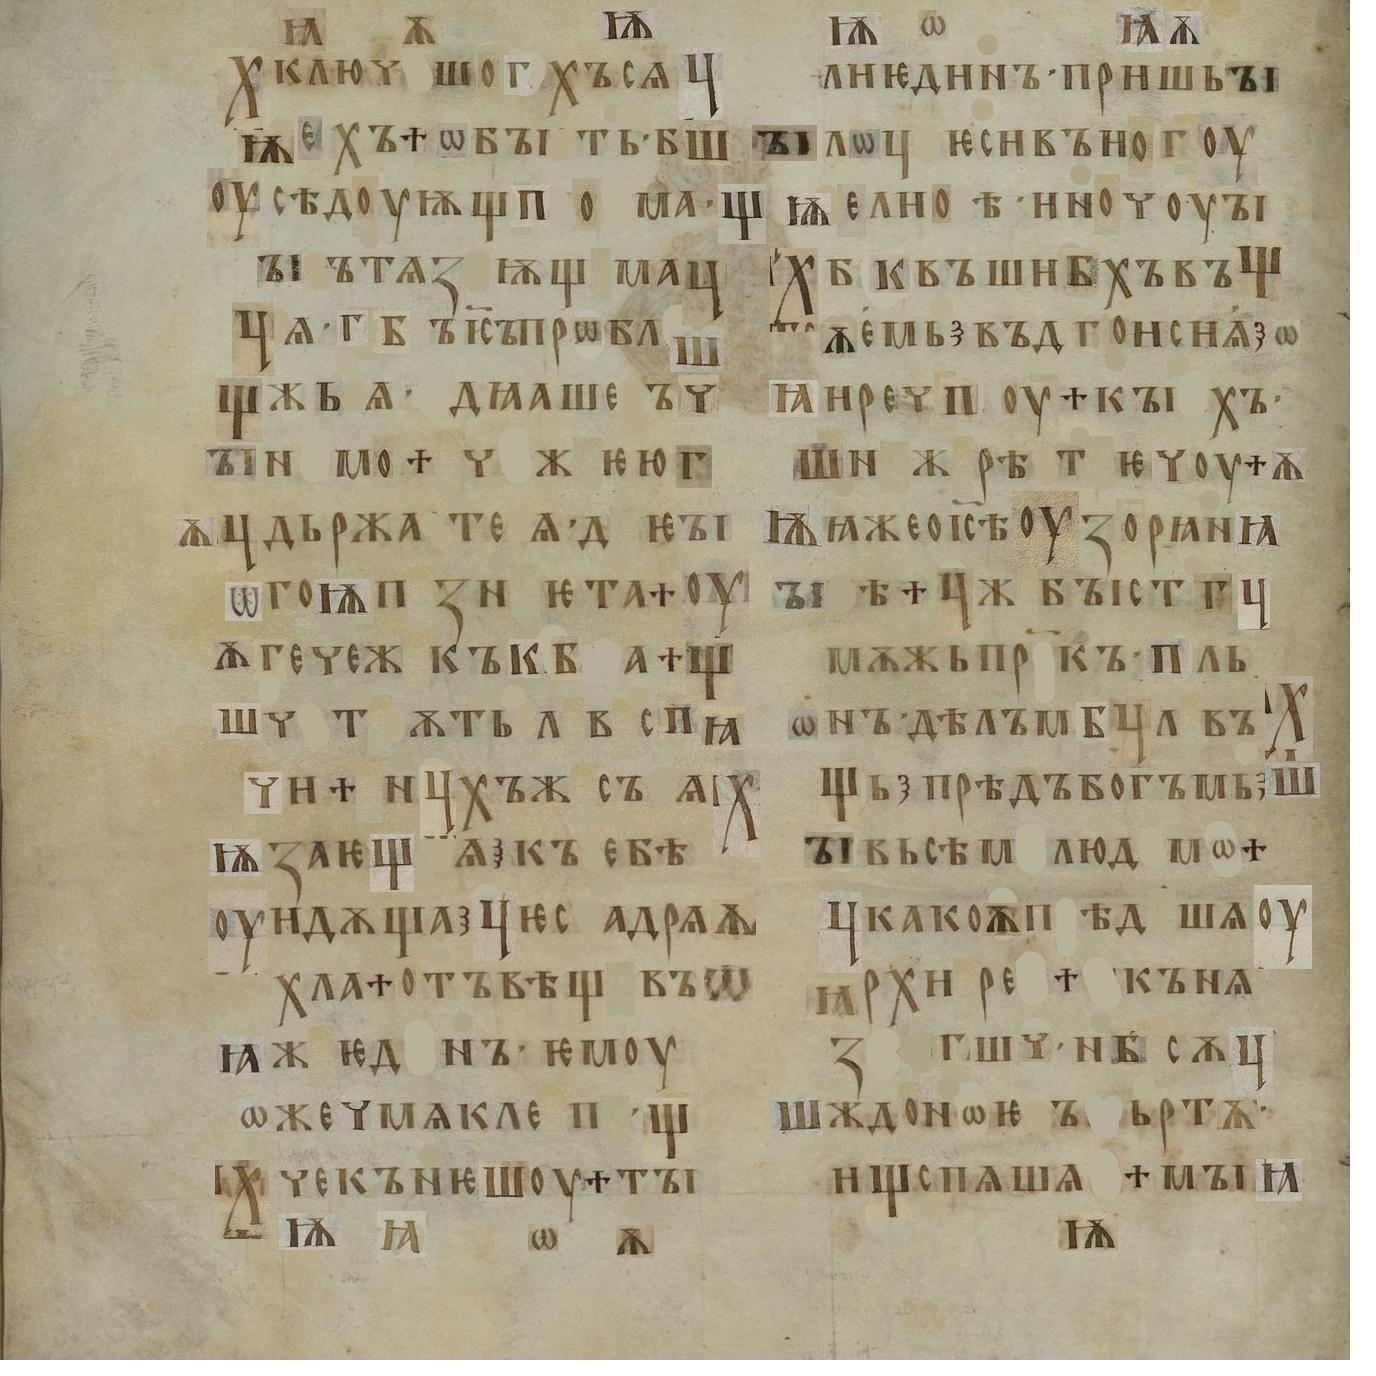 ꙗ ѫ ѭ
хклюѵ шог хъсѧ ч
ѭ е хъ+ѡбꙑ ть·бш
оусѣдоуѭщп о ма·щ
ꙑ ътѧꙁ ѭщ мац
чѧ·г б ъі҃съпрѡбл ш
щжь ѧ· дꙗаше ъѵ
ꙑн мо+ ѵ ж ѥюг
ѫцдьржа те ѧ·д ѥꙑ
ѿгоѭп ꙁн ѥта+оу
ѫгеѵеж къкб а+щ
шѵ т ѫть л в спꙗ
ѵн+ нчхъж съ ѧ х
ѭꙁаѥщ ѧꙁкъ ебѣ
оундѫщаꙁчѥс адрѧѫ
хла+отъвѣщ въѿ
ꙗж ѥд нъ·ѥмоу
ѡжеѵмѧкле п ·щ
хѵекънѥшоу+тꙑ
ѭ ꙗ ѡ ѫ
ѭ ѡ ꙗѫ
лнѥдннъ·пршьꙑ
ꙑлѡц ѥснвъног оу
ѭ елно ѣ·нноѵоуꙑ
хб квъшнбхъвъщ
ѫемьꙁвъдгонснѧꙁѡ
ꙗнреѵп оу+кꙑ хъ·
шн ж рѣ т ѥѵоу+ѫ
ѭꙗжеоі҃сѣоуꙁорꙗнꙗ
ꙑ ѣ+чж бꙑст гч
мѫжьпр къ·п ль
ѡнъ·дѣлъмбчл въх
щьꙁпрѣдъбогъмьꙁш
ꙑвьсѣм люд мѡ+
чкакоѫп ѣд шѧоу
ꙗрхн ре + кънѧ
ꙁ гшѵ·нб сѫч
шждонѡѥ ъ ьртѫ·
нщспѧшѧ +мꙑꙗ
ѭ